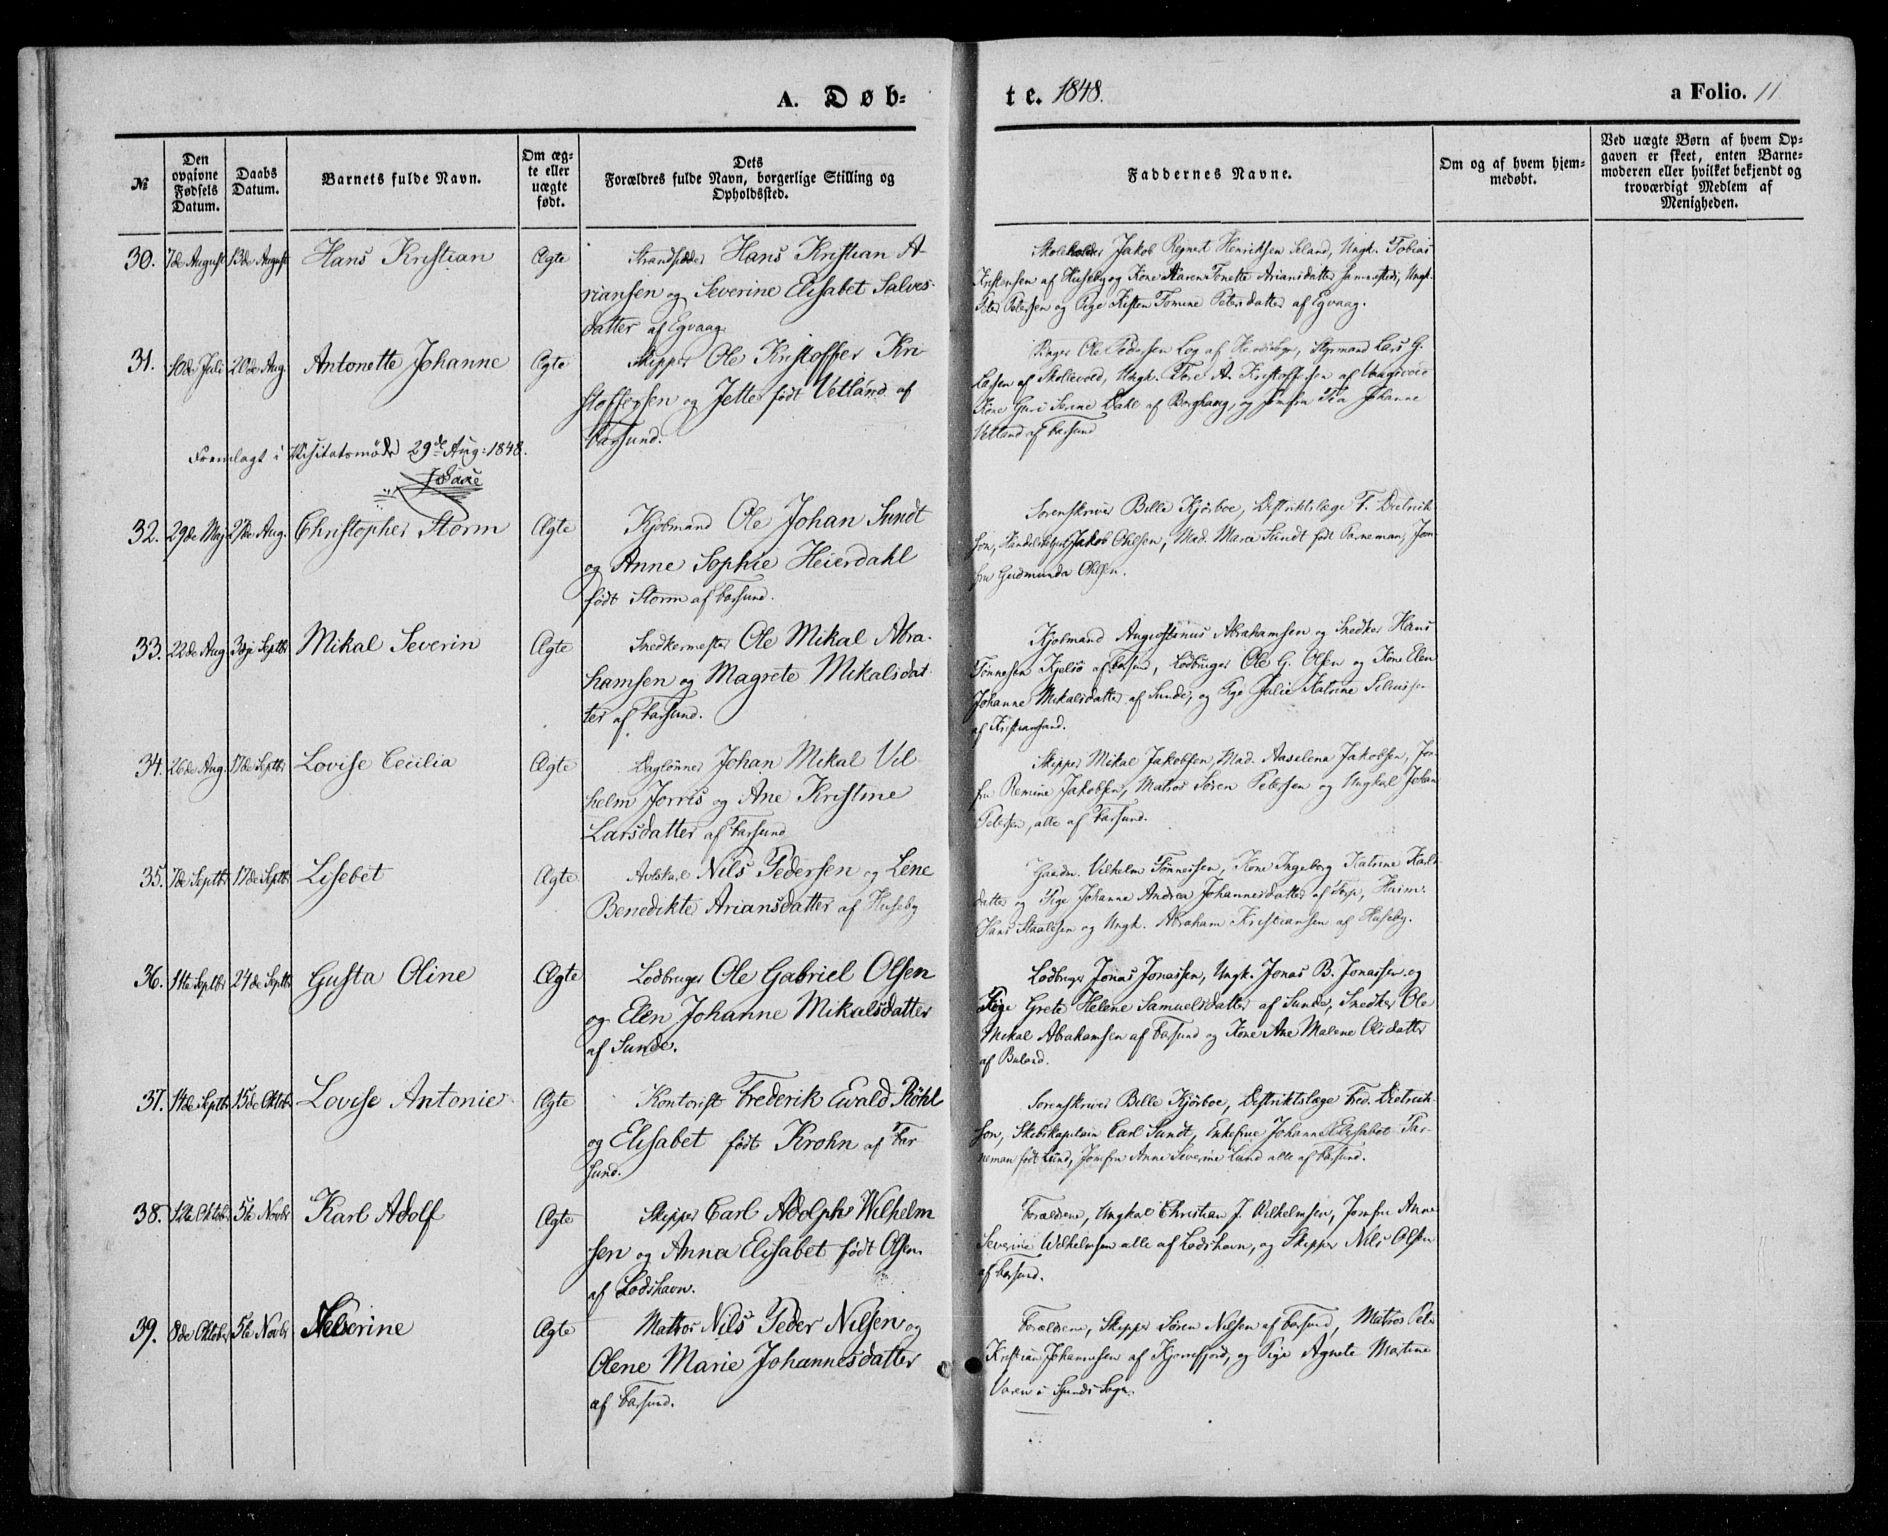 A. Døb-
te. 1848.
a Folio. 11
№
Den opgivne Fødsels Datum.
Daabs Datum.
Barnets fulde Navn.
Om ægte eller uægte født.
Dets Forældres fulde Navn, borgerlige Stilling og Opholdssted.
Faddernes Navne.
Om og af hvem hjemmedøbt.
Ved uægte Børn af hvem Opgaven er skeet, enten Barnemoderen eller hvilket bekjendt og troværdigt Medlem af Menigheden.
30. 7de August 13de August Hans Kristian Ægte
Strandsidder Hans Kristian A-
riansen og Severine Elisabet Salves-
datter af Egvaag.
Skoleholder Jakob Regnert Henriksen Seland, Ungk. Tobias
Kristensen af Huseby og Kone Karen Tonette Ariansdatter sammesteds, Ungk.
Peter Petersen og Pige Kisten Tomine Petersdatter af Egvaag.
31. 10de Juli 20de Aug. Antonette Johanne Ægte
Skipper Ole Kristoffer Kri-
stoffersen og Jette født Vetland af
Farsund.
Ole Pedersen Log af Styrmand Lars G.
Larsen af Ungk. Tore A. Kristoffersen af
Kone Guri Serine Dahl af Borghaug, og Jomfru Johanne
Vetland af Farsund
Fremlagt i Visitatsmøde 29de Aug: 1848.
32. 29de Maj 27de Aug. Christopher Storm Ægte
Kjøbmand Ole Johan Sundt
og Anne Sophie Heierdahl
født Storm af Farsund.
Sorenskriver Bille Kjørboe, Destriktslæge F. Dietrik-
son, Jakob Ohlsen, Mad. Maria Sundt født Farneman, Jom-
fru Gudmunda Ohlsen.
33. 22de Aug. 3dje Septbr Mikal Severin Ægte
Snedkermester Ole Mikal Abra-
hamsen og Magrete Mikalsdat-
ter af Farsund.
Kjøbmand Augustinus Abrahamsen og Snedker Hans
Tønnesen Kjelsø af Farsund, Lodbruger Ole G. Olsen og Kone Elen
Johanne Mikalsdatter af Sunde, og Pige Julie Katrine
af Kristiansand.
34. 26de Aug. 17de Septbr Lovise Cecilia Ægte
Daglønner Johan Mikal Vil-
helm Jorris og Ane Kristine
Larsdatter af Farsund
Skipper Mikal Jakobsen, Mad. Aaselena Jakobsen, Jom-
fru Remine Jakobsen, Matros Søren Petersen og Ungkal Johan
Petersen, alle af Farsund.
35. 7de Septbr 17de Septbr Lisebet Ægte
Nils Pedersen og Lene
Benedikte Ariansdatter af Huseby
Vilhelm Tønnessen, Kone Ingeborg Katrine Karls-
datter og Pige Johanne Andrea Johannesdatter af
Hans Staalesen og Ungk. Abraham Kristiansen af Huseby.
36. 14de Septbr 24de Septbr Gusta Oline Ægte
Lodbruger Ole Gabriel Olsen
og Elen Johanne Mikalsdatter
af Sunde.
Lodbruger Jonas Jonassen, Ungk. Jonas B. Jonassen og
Pige Grete Helene Samuelsdatter af Sunde, Snedker Ole
Mikal Abrahamsen af Farsund og Kone Ane Malene Olsdatter
af Buland.
37. 14de Septbr 15de Oktob. Lovise Antonie Ægte
Kontorist Frederik Ewald Röhl
og Elisabet født Krohn af Far-
sund.
Sorenskriver Bille Kjørboe, Destriktslæge Fred. Dietrich-
son, Skibskapitain Carl Sundt, Enkefrue Johanne Elisabet Far-
neman født Lund, Jomfru Anne Severine Lund alle af Farsund.
38. 12te Oktober 5te Novbr Karl Adolf Ægte
Skipper Carl Adolph Wilhelm-
sen og Anna Elisabet født Olsen
af Lodshavn.
Forældrene, Ungkal Christian J. Vilhelmsen, Jomfru Anne
Severine Wilhelmsen alle af Lodshavn, og Skipper Nils Olsen
af Farsund.
39. 8de Oktober 5te Novbr Severine Ægte
Matros Nils Peder Nilsen og
Olene Marie Johannesdatter
af Farsund.
Forældrene, Skipper Søren Nilsen af Farsund, Matros
Kristian Johannesen af Kjørrefjord, og Pige Agnete Martine